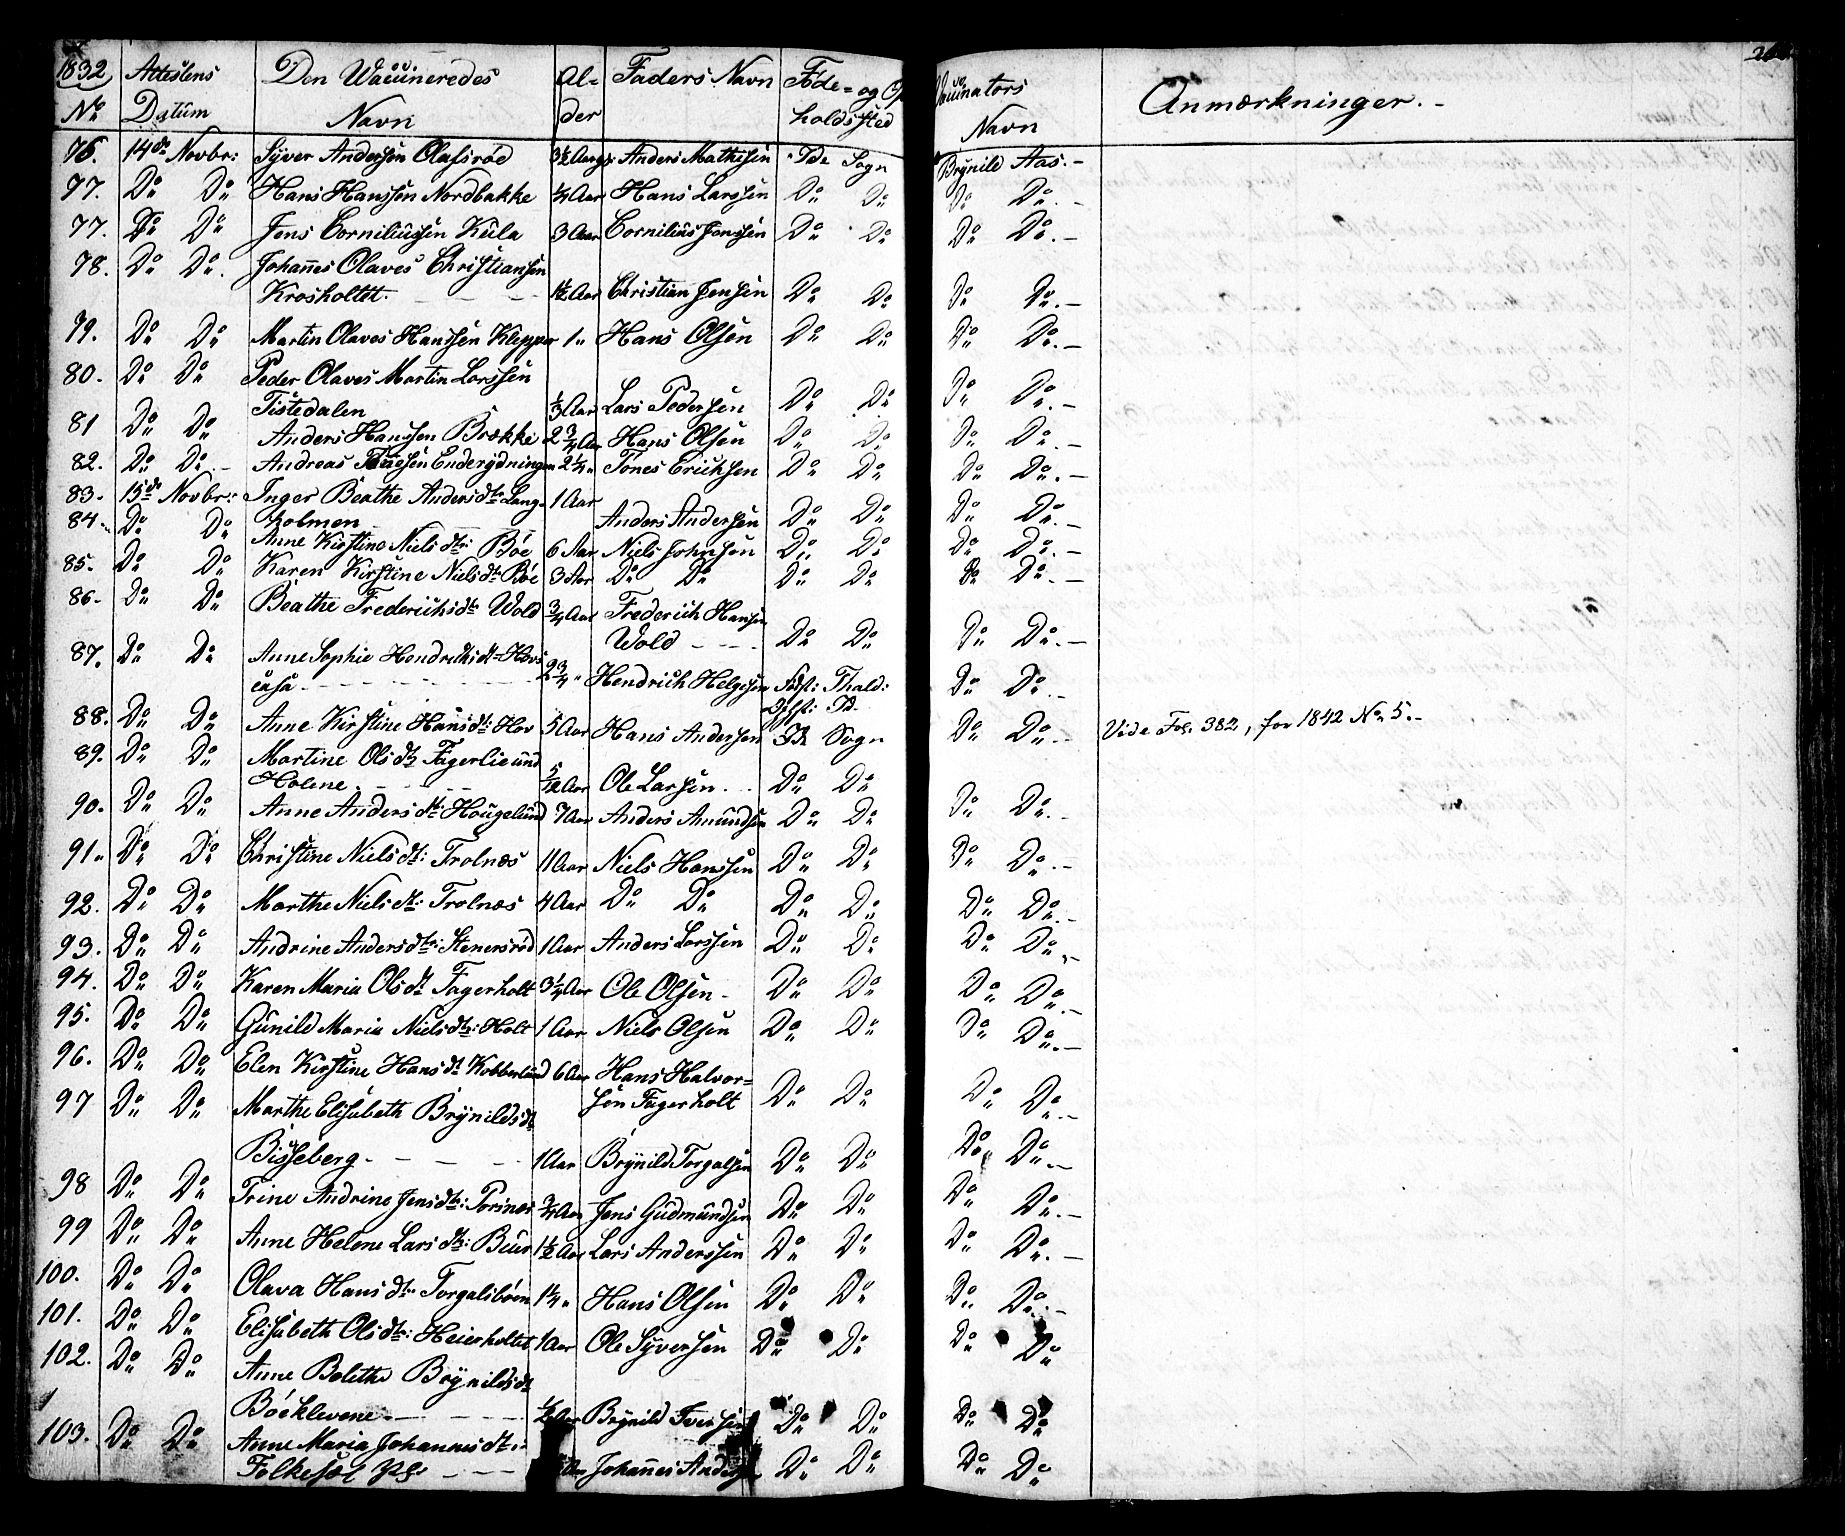 1832 Attestens Den Vaccineredes Al- Faders Navn Føde- og Op Vaccinators Anmærkninger.-
No Datum Navn der holdssted Navn
76. 14de Novbr: Syver Andersen Olasrød 3½ Aar Anders Mathisen Idde Sogn Brynild Aas.-
77. Do Do Hans Hanssen Nordbakke ¼ Aar Hans Larssen Do Do Do Do.-
77. Do Do Jens Corniliussen Kula 3 Aar Cornilius Jenssen Do Do Do Do.-
78. Do Do. Johannes Olaves Christiansen
Krosholtet. - - - 1½ Aar Christian Jensen Do Do Do Do.-
79. Do Do Martin Olaves Hanssen Klepper 1 " Hans Olsen Do Do Do Do.-
80. Do Do Peder Olaves Martin Larssen
Tistedalen ⅓ Aar Lars Pedersen Do Do Do Do.-
81 Do Do Anders Hanssen Brække 2¾ Aar Hans Olsen Do Do Do Do.-
82. Do Do.- Andreas Enderydningen 2¼ " Tønes Erichsen Do Do Do Do.-
83. 15de Novbr: Inger Beathe Andersdtr Lang- 1 Aar
holmen Anders Andersen Do Do Do Do.-
84. Do Do Anne Kirstine Nielsdtr: Bøe 6 Aar Niels Johnsen Do Do Do Do.-
85. Do Do Karen Kirstine Nielsdtr Bøe 3 Aar Do Do Do Do Do Do.-
86. Do Do Beathe Frederichsdtr Wold ¾ Aar Frederich Hansen
Wold - - - Do Do Do Do.-
87. Do Do Anne Sophie Hendrichsdt Hovs
casa - - - 2¾ " Hendrich Helgesen Fødst: Fhald: Do Do.-
Opfst: Id.
88. Do Do Anne Kirstine Hansdt: Hov 5 Aar Hans Andersen Id Sogn Do Do.- Vide Fol. 382, for 1842 No 5.-
89. Do Do Martine Olsdtr Fagerlieund
Holene - - - 5/12 Aar Ole Larsen.. Do Do Do Do.
90. Do Do Anne Andersdt: Hougelund 7 Aar Anders Amundsen Do Do Do Do.-
91. Do Do Christine Nielsdt: Trolnæs 11 Aar Niels Hanssen Do Do Do Do.-
92. Do Do Marthe Nielsdt: Trolnæs 4 Aar Do Do Do Do Do Do.-
93. Do Do Andrine Andersdtr: Stenersrød 1 Aar Anders Larssen Do Do Do Do.-
94. Do Do Karen Maria Olsdt Fagerholt 3¼ Aar Ole Olsen - Do Do Do Do.-
95. Do Do Gunild Maria Nielsdtr: Holt 1 Aar Niels Olsen Do Do Do Do.-
96. Do Do Elen Kirstine Hansdt Kobberlund 6 Aar Hans Halvor=
sen Fagerholt Do Do Do Do.-
97 Do Do Marthe Elisabeth Brynildsdt
Bisseberg - - - 1 Aar Brynild Torgalsen Do Do Do Do.-
98 Do Do Trine Andrine Jensdtr: Torines ¾ Aar Jens Gudmundsen Do Do Do Do.-
99 Do Do Anne Helene Larsdtr: Buur 1½ Aar Lars Anderssen Do Do Do Do.-
100. Do Do Olava Hansdtr Torgalsbøen 1¼ " Hans Olsen Do Do Do Do.-
101. Do Do Elisabeth Olsdtr: Heierholtet 1 Aar Ole Syversen Do Do Do Do
102. Do Do Anne Bolethe Brynildsdt
Bøeklevene - - - ½ Aar Brynild Iversen Do Do Do Do
103. Do Do Anne Maria Johannesdt:
Folkesæl - - - Aar Johannes Anders Do Do Do Do